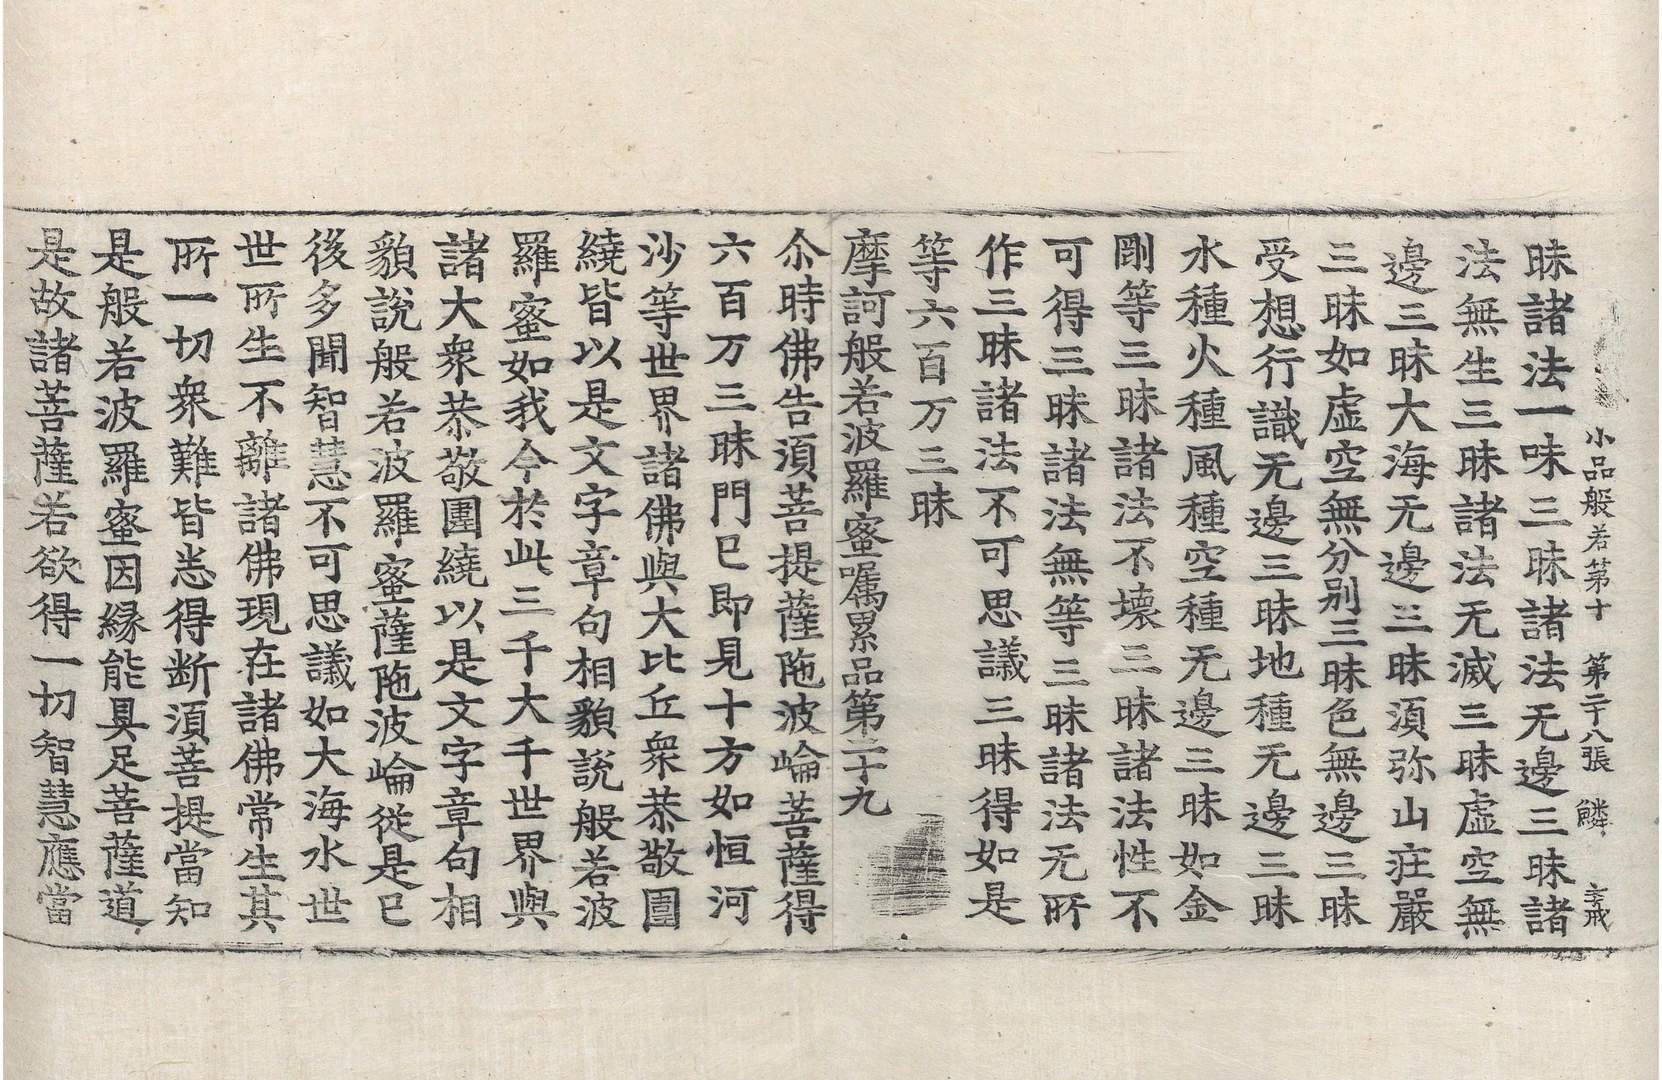 小品般若第十 第二十八張 鱗 孝戒
昧諸法一味三昧諸法无邊三昧諸
法無生三昧諸法无滅三昧虛空無
邊三昧大海无邊三昧須弥山莊嚴
三昧如虛空無分別三昧色無邊三昧
受想行識无邊三昧地種无邊三昧
水種火種風種空種无邊三昧如金
剛等三昧諸法不壞三昧諸法性不
可得三昧諸法無等三昧諸法无所
作三昧諸法不可思議三昧得如是
等六百万三昧
摩訶般若波羅蜜囑累品第二十九
尒時佛告須菩提薩陁波崘菩薩得
六百万三昧門已即見十方如恒河
沙等世界諸佛與大比丘衆恭敬圍
繞皆以是文字章句相貌說般若波
羅蜜如我今於此三千大千世界與
諸大衆恭敬圍繞以是文字章句相
貌說般若波羅蜜薩陁波崘從是已
後多聞智慧不可思議如大海水世
世所生不離諸佛現在諸佛常生其
所一切衆難皆悉得断須菩提當知
是般若波羅蜜因縁能具足菩薩道
是故諸菩薩若欲得一切智慧應當